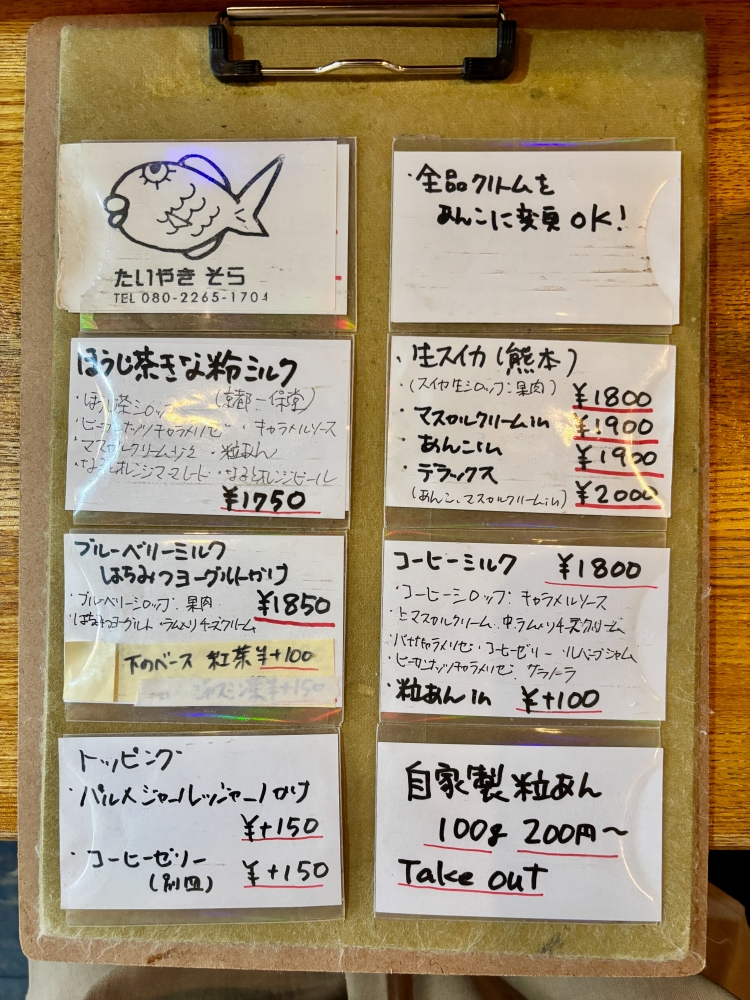 たいやき そら
TEL 080-2265-1704
・全品クリームを
あんこに変更OK!
ほうじ茶きな粉ミルク
・ほうじ茶シロップ (京都一保堂)
・ピーカンナッツキャラメリゼ ・キャラメルソース
・マスカルクリーム ・粒あん
・なつみオレンジママレード ・なつみオレンジピール
¥1750
・生スイカ(熊本)
(スイカ生シロップ:果肉) ¥1800
・マスカルクリームin ¥1900
・あんこin ¥1900
・デラックス ¥2000
(あんこ、マスカルクリームin)
ブルーベリーミルク
はちみつヨーグルトかけ
・ブルーベリーシロップ:果肉 ¥1850
・はちみつヨーグルト・ラムメリチーズクリーム
下のベース 紅茶¥+100
ジャスミン茶¥+150
コーヒーミルク ¥1800
・コーヒーシロップ:キャラメルソース
・上マスカルクリーム 中ラムメリチーズクリーム
・バナナキャラメリゼ・コーヒーゼリー・ルバーブジャム
・ピーカンナッツキャラメリゼ グラノーラ
・粒あんin ¥+100
トッピング
・パルメジャーノレッジャーノかけ
¥+150
・コーヒーゼリー
(別皿) ¥+150
自家製粒あん
100g 200円〜
Take out